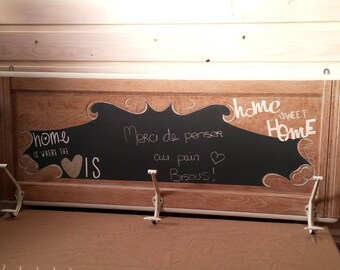 home
IS WHERE THE
IS
Merci de penser
au pain ♡
Bisous!
home
SWEET
HOME